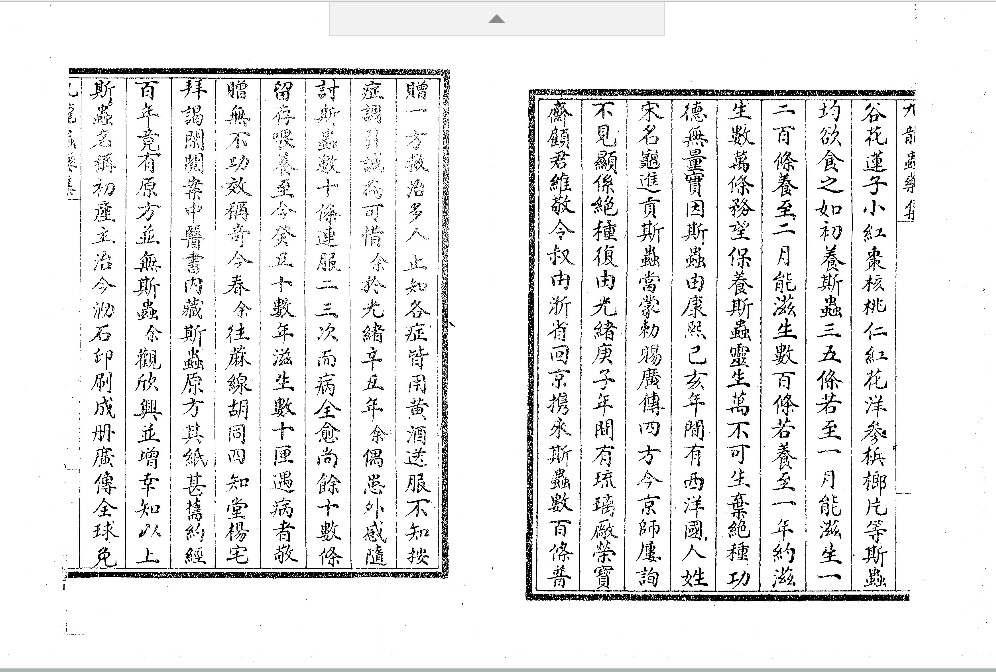 九龍蟲藥集
谷花蓮子小紅棗核桃仁紅花洋參梹榔片等斯蟲
均欲食之如初養斯蟲三五條若至一月能滋生一
二百條養至二月能滋生數百條若養至一年約滋
生數萬條務望保養斯蟲靈生萬不可生棄絕種功
德無量實因斯蟲由康熙己亥年間有西洋國人姓
宋名龜進貢斯蟲當蒙勅賜廣傳四方今京師屢詢
不見顯係絕種復由光緒庚子年間有琉璃廠榮寶
齋顧君維敬令叔由浙省回京携來斯蟲數百條普
贈一方救治多人止知各症皆用黃酒送服不知按
症調引誠為可惜余於光緒辛丑年余偶患外感隨
討斯蟲數十條連服二三次而病全愈尚餘十數條
留存喂養至今癸丑十數年滋生數十匣遇病者敬
贈無不功效稱奇今春余往蔴線胡同四知堂楊宅
拜謁閒閱案中醫書內藏斯蟲原方其紙甚舊約經
百年竟有原方並無斯蟲余觀欣興並增幸知以上
斯蟲名稱初產主治今泐石印刷成册廣傳全球免